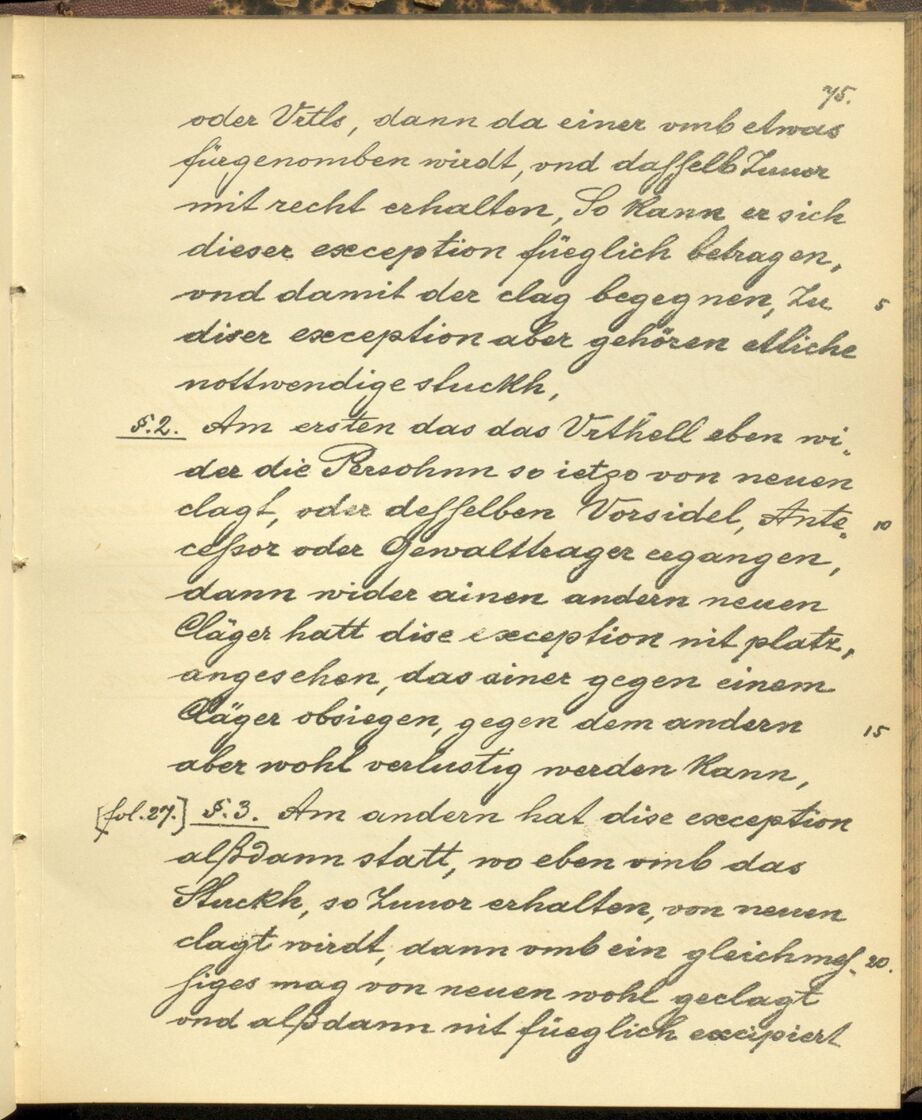 75.
oder Vrtls, dann da einer vmb etwas
fürgenomben wirdt, vnd dasselb Zuuor
mit recht erhalten, So kann er sich
dieser exception füeglich betragen,
vnd damit der clag begegnen, Zu 5
diser exception aber gehören etliche
nottwendige stuckh,
§.2. Am ersten das das Vrthell eben wi-
der die Persohnn so ietzo von neuen
clagt, oder desselben Vorsidel, Ante- 10
cessor oder Gewalttrager ergangen,
dann wider ainen andern neuen
Cläger hatt dise exception nit platz,
angesehen, das ainer gegen einem
Cläger obsiegen, gegen dem andern 15
aber wohl verlustig werden kann,
[fol.27.] §.3. Am andern hat dise exception
alßdann statt, wo eben vmb das
Stuckh, so Zuuor erhalten, von neuen
clagt wirdt, dann vmb ein gleichmes- 20.
siges mag von neuen wohl geclagt
vnd alßdann nit füeglich excipiert